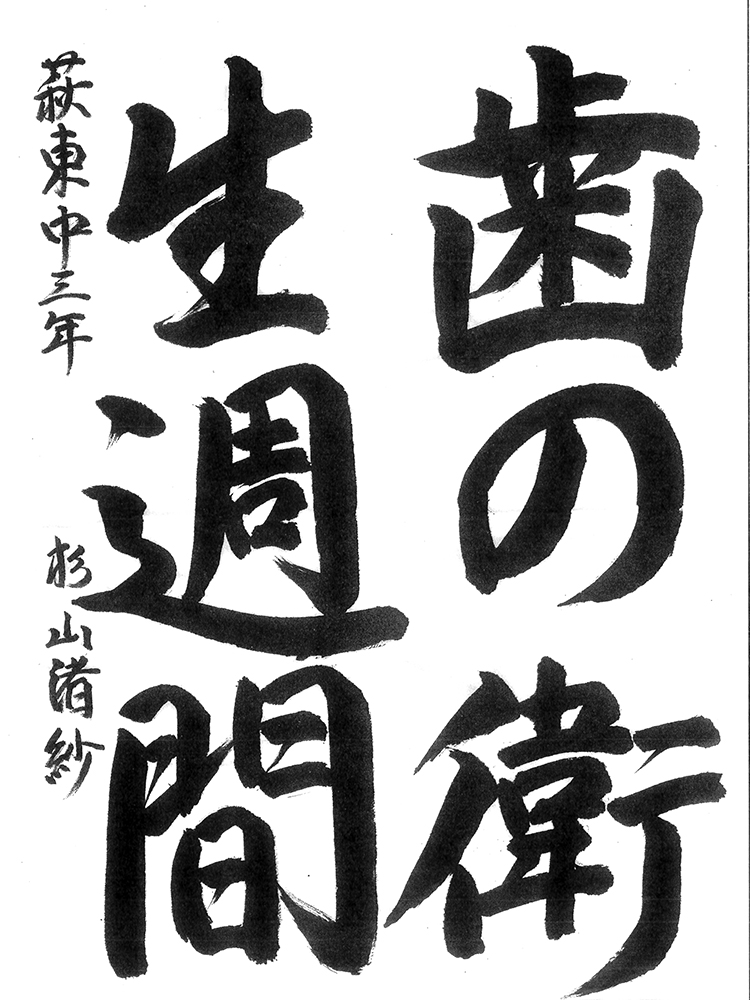 歯の衛
生週間
萩東中三年 杉山渚紗